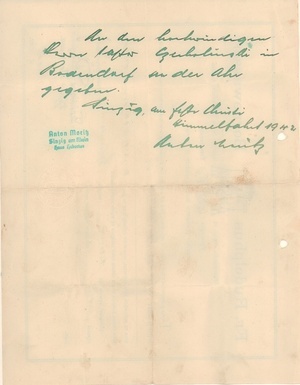 An den hochwürdigen
Herrn Pastor in
Bodendorf an der Ahr
gegeben.
Sinzig, am Feste Christi
Himmelfahrt 1942
Anton Moritz
Anton Moritz
Sinzig am Rhein
Haus